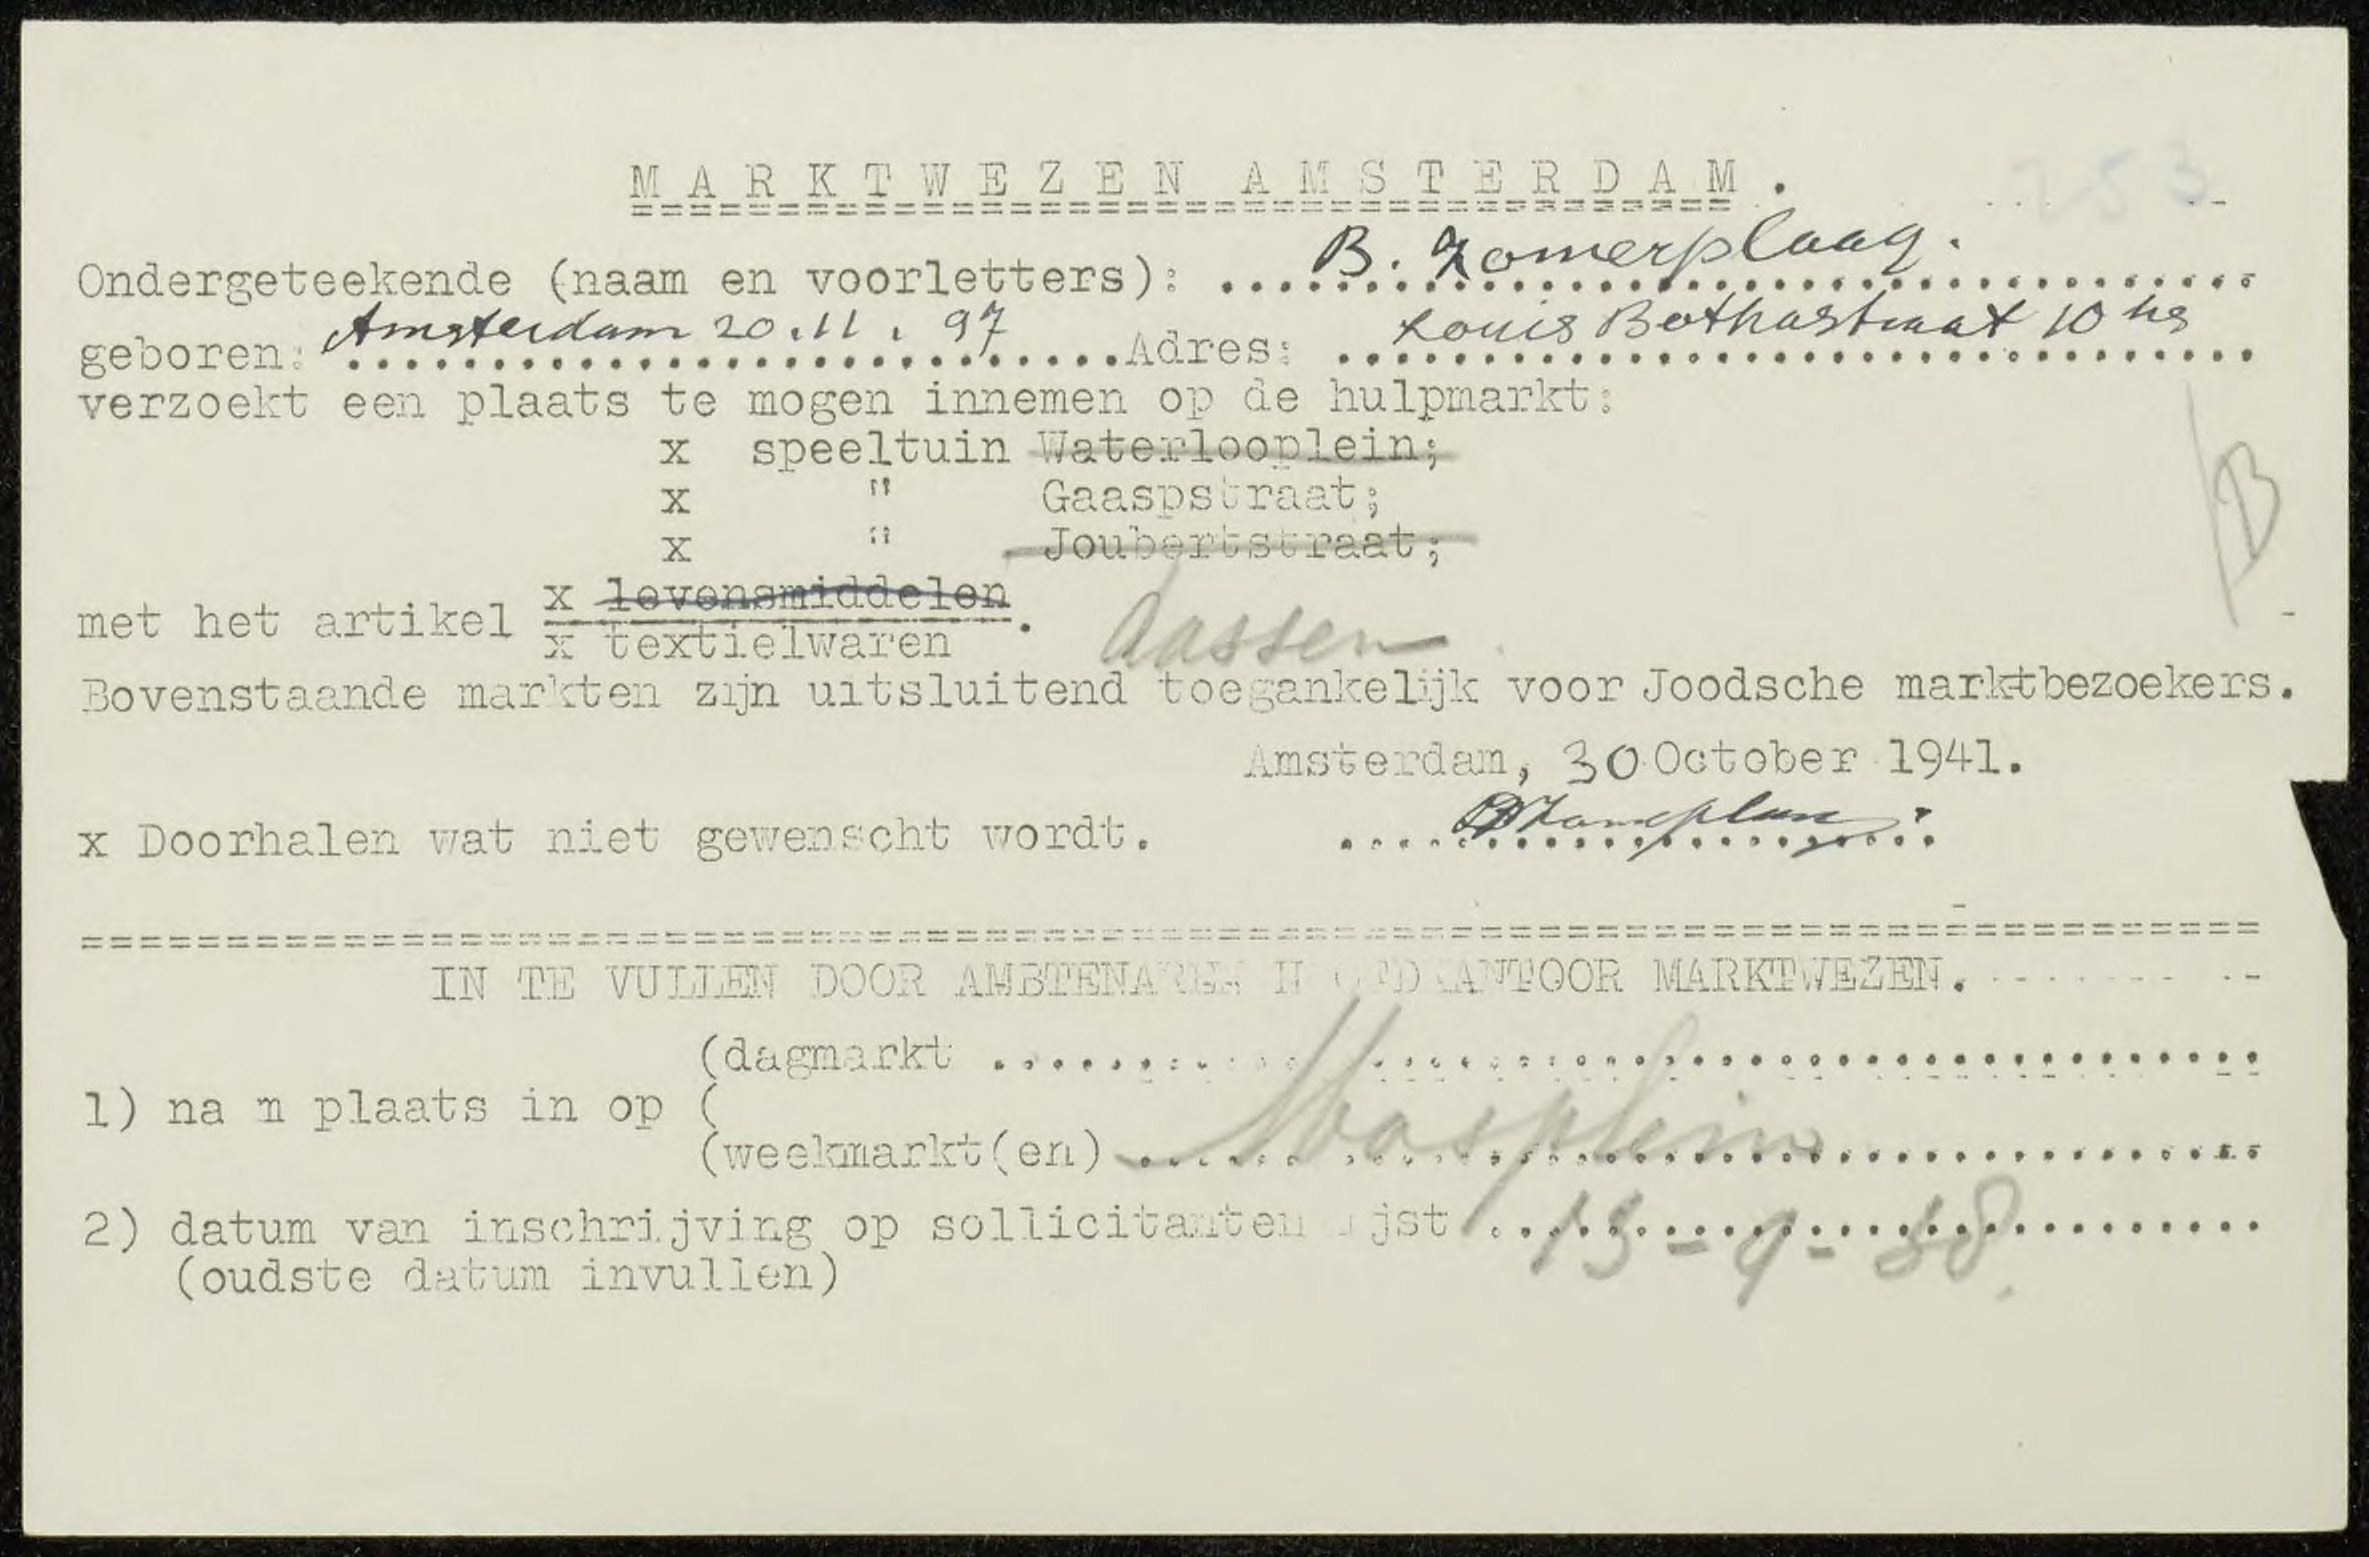 253
MARKTWEZEN AMSTERDAM.
Ondergeteekende (naam en voorletters): B. Zomerplaag.
geboren: Amsterdam 20.11.97 Adres: Louis Bothastraat 10 hs
verzoekt een plaats te mogen innemen op de hulpmarkt:
x speeltuin Waterlooplein;
x " Gaaspstraat;
x " Joubertstraat;
B
met het artikel x levensmiddelen
x textielwaren.
dassen
Bovenstaande markten zijn uitsluitend toegankelijk voor Joodsche marktbezoekers.
Amsterdam, 30 October 1941.
x Doorhalen wat niet gewenscht wordt.
IN TE VULLEN DOOR AMBTENAREN HOOFDKANTOOR MARKTWEZEN.
(dagmarkt
1) nam plaats in op (
(weekmarkt(en) Mosplein
2) datum van inschrijving op sollicitantenlijst 13-9-38.
(oudste datum invullen)